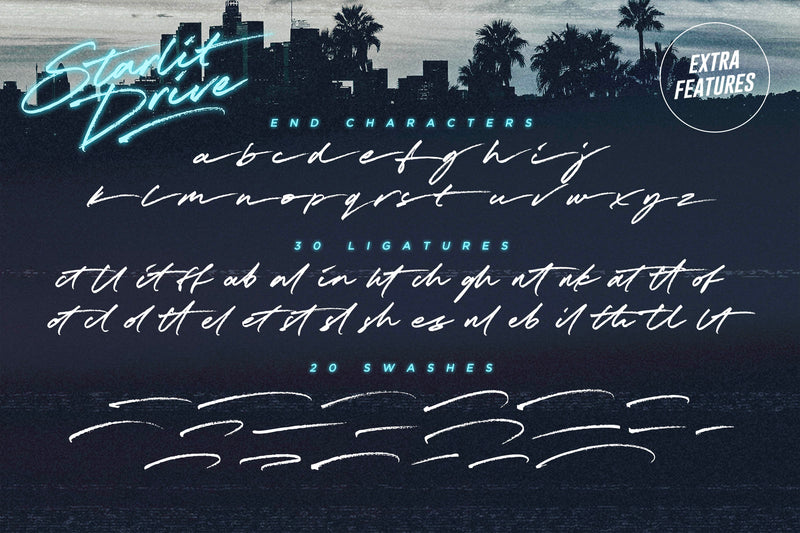 Starlit
Drive
EXTRA
FEATURES
END CHARACTERS
a b c d e f g h i j
k l m n o p q r s t u v w x y z
30 LIGATURES
ct ll it ff ab al in ht ch gh nt nk at tt of
ot cl ol tt el et st sl sh es nl eb il th tl lt
20 SWASHES